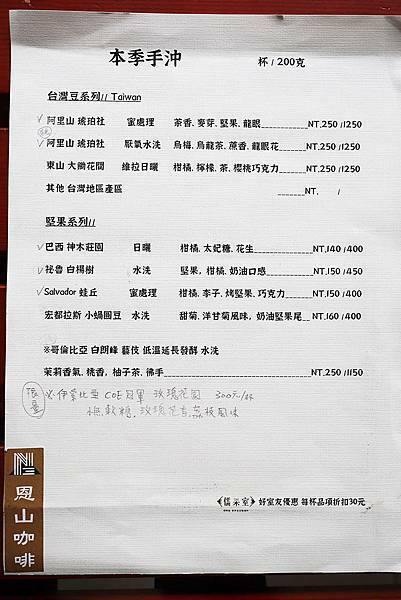 本季手沖 杯 / 200克
台灣豆系列// Taiwan
✓阿里山 琥珀社 蜜處理 茶香. 麥芽. 堅果. 龍眼____________NT.250 /1250
✓阿里山 琥珀社 厭氧水洗 烏梅. 烏龍茶. 蔗香. 龍眼花_______NT.250 /1250
東山 大鋤花間 維拉日曬 柑橘. 檸檬. 茶. 櫻桃巧克力_______NT.250 /1250
其他 台灣地區產區 _______NT. /
堅果系列//
✓巴西 神木莊園 日曬 柑橘. 太妃糖. 花生_______________NT.140 /400
✓祕魯 白楊樹 水洗 堅果, 柑橘. 奶油口感____________NT.150 /450
✓Salvador 蛙丘 蜜處理 柑橘. 李子. 烤堅果. 巧克力_______NT.150 /400
宏都拉斯 小蝸圓豆 水洗 甜菊. 洋甘菊風味, 奶油堅果尾__NT.160 /400
※哥倫比亞 白朗峰 藝伎 低溫延長發酵 水洗
茉莉香氣. 桃香, 柚子茶. 佛手_________________NT.250 /1150
限量 ※伊索比亞 COE冠軍 玫瑰花園 300元/杯
軟糖. 玫瑰花香. 荔枝風味
恩山咖啡
《儒禾室》好室友優惠 每杯品項折扣30元